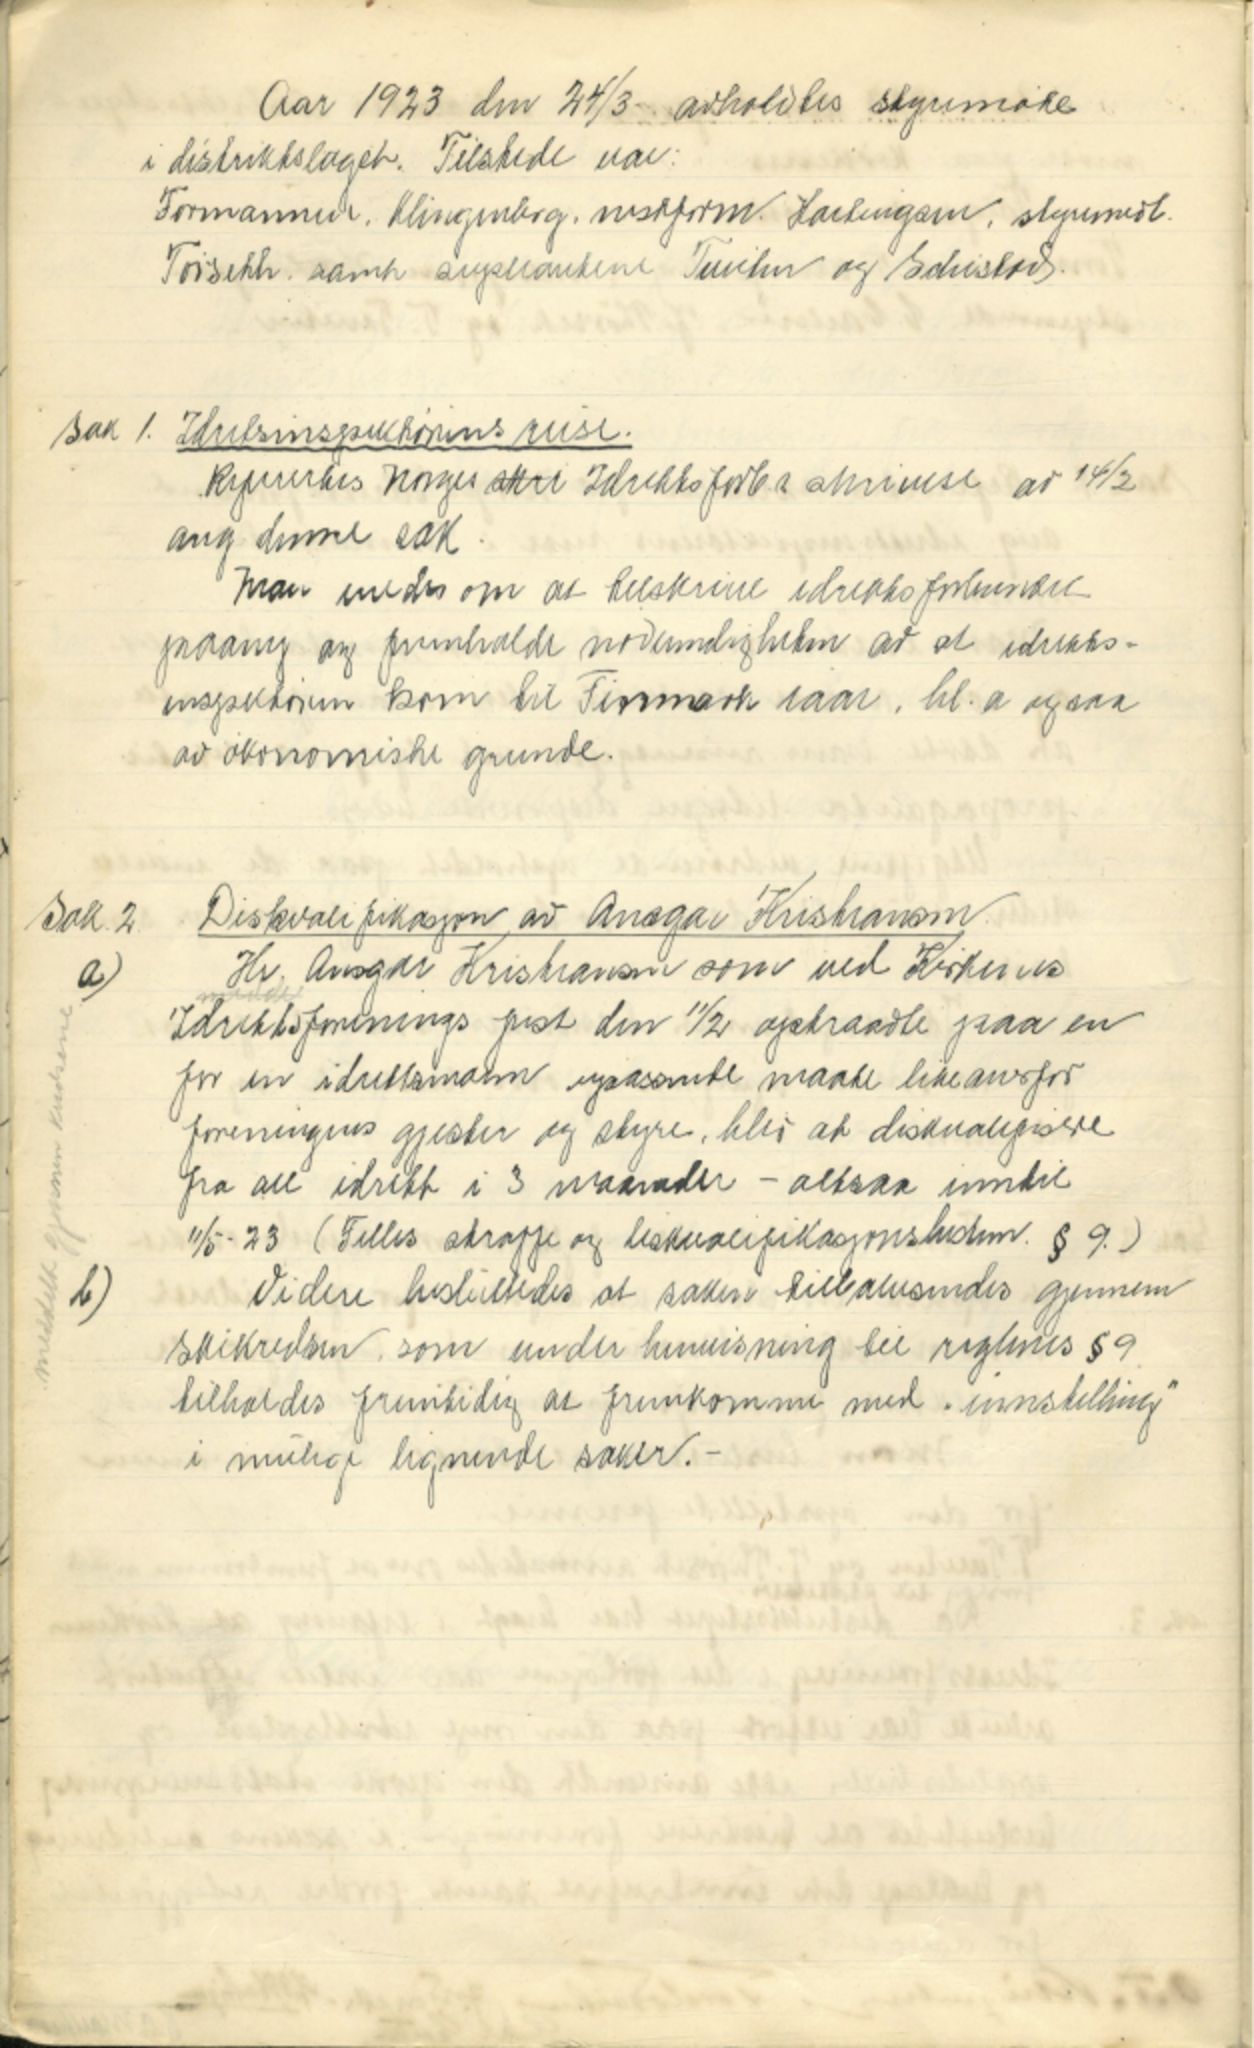 Aar 1923 den 24/3 avholdtes styremøte
i distriktslaget. Tilstede var:
Formannen, Klingenberg, nestform. Hartvigsen, styremedl.
Thorseth samt supleantene Tuvelw og Schistad.
Sak 1. Idretsinspektørens reise.
Refirertes Norges Idrettsforb s skrivelse av 14/2
ang denne sak.
Man enedes om at tilskrive idrettsforbundet
paany og fremholde nødvendigheten av at idretts-
inspektøren kom til Finmark iaar, bl. a ogsaa
av økonomiske grunde.
Sak 2. Diskvalifikasjon av Ansgar Kristiansen
a) Hr. Ansgar Kristiansen som ved Kirkenes
Idrettsforenings fest den 11/2 optraadte paa en
for en idrettsmann upassende maate likeoverfor
foreningens gjester og styre, blir at diskvalifisere
fra all idrett i 3 maaneder - altsaa inntil
11/5-23 (Felles straffe og diskvalifikasjonsbestem. § 9.)
b) Videre besluttedes at saken tilbakesendes gjennem
skikredsen, som under henvisning til reglenes § 9
tilholdes fremtidig at fremkomme med "innstilling"
i mulige lignende saker.-
meddelt gjennem kredsene